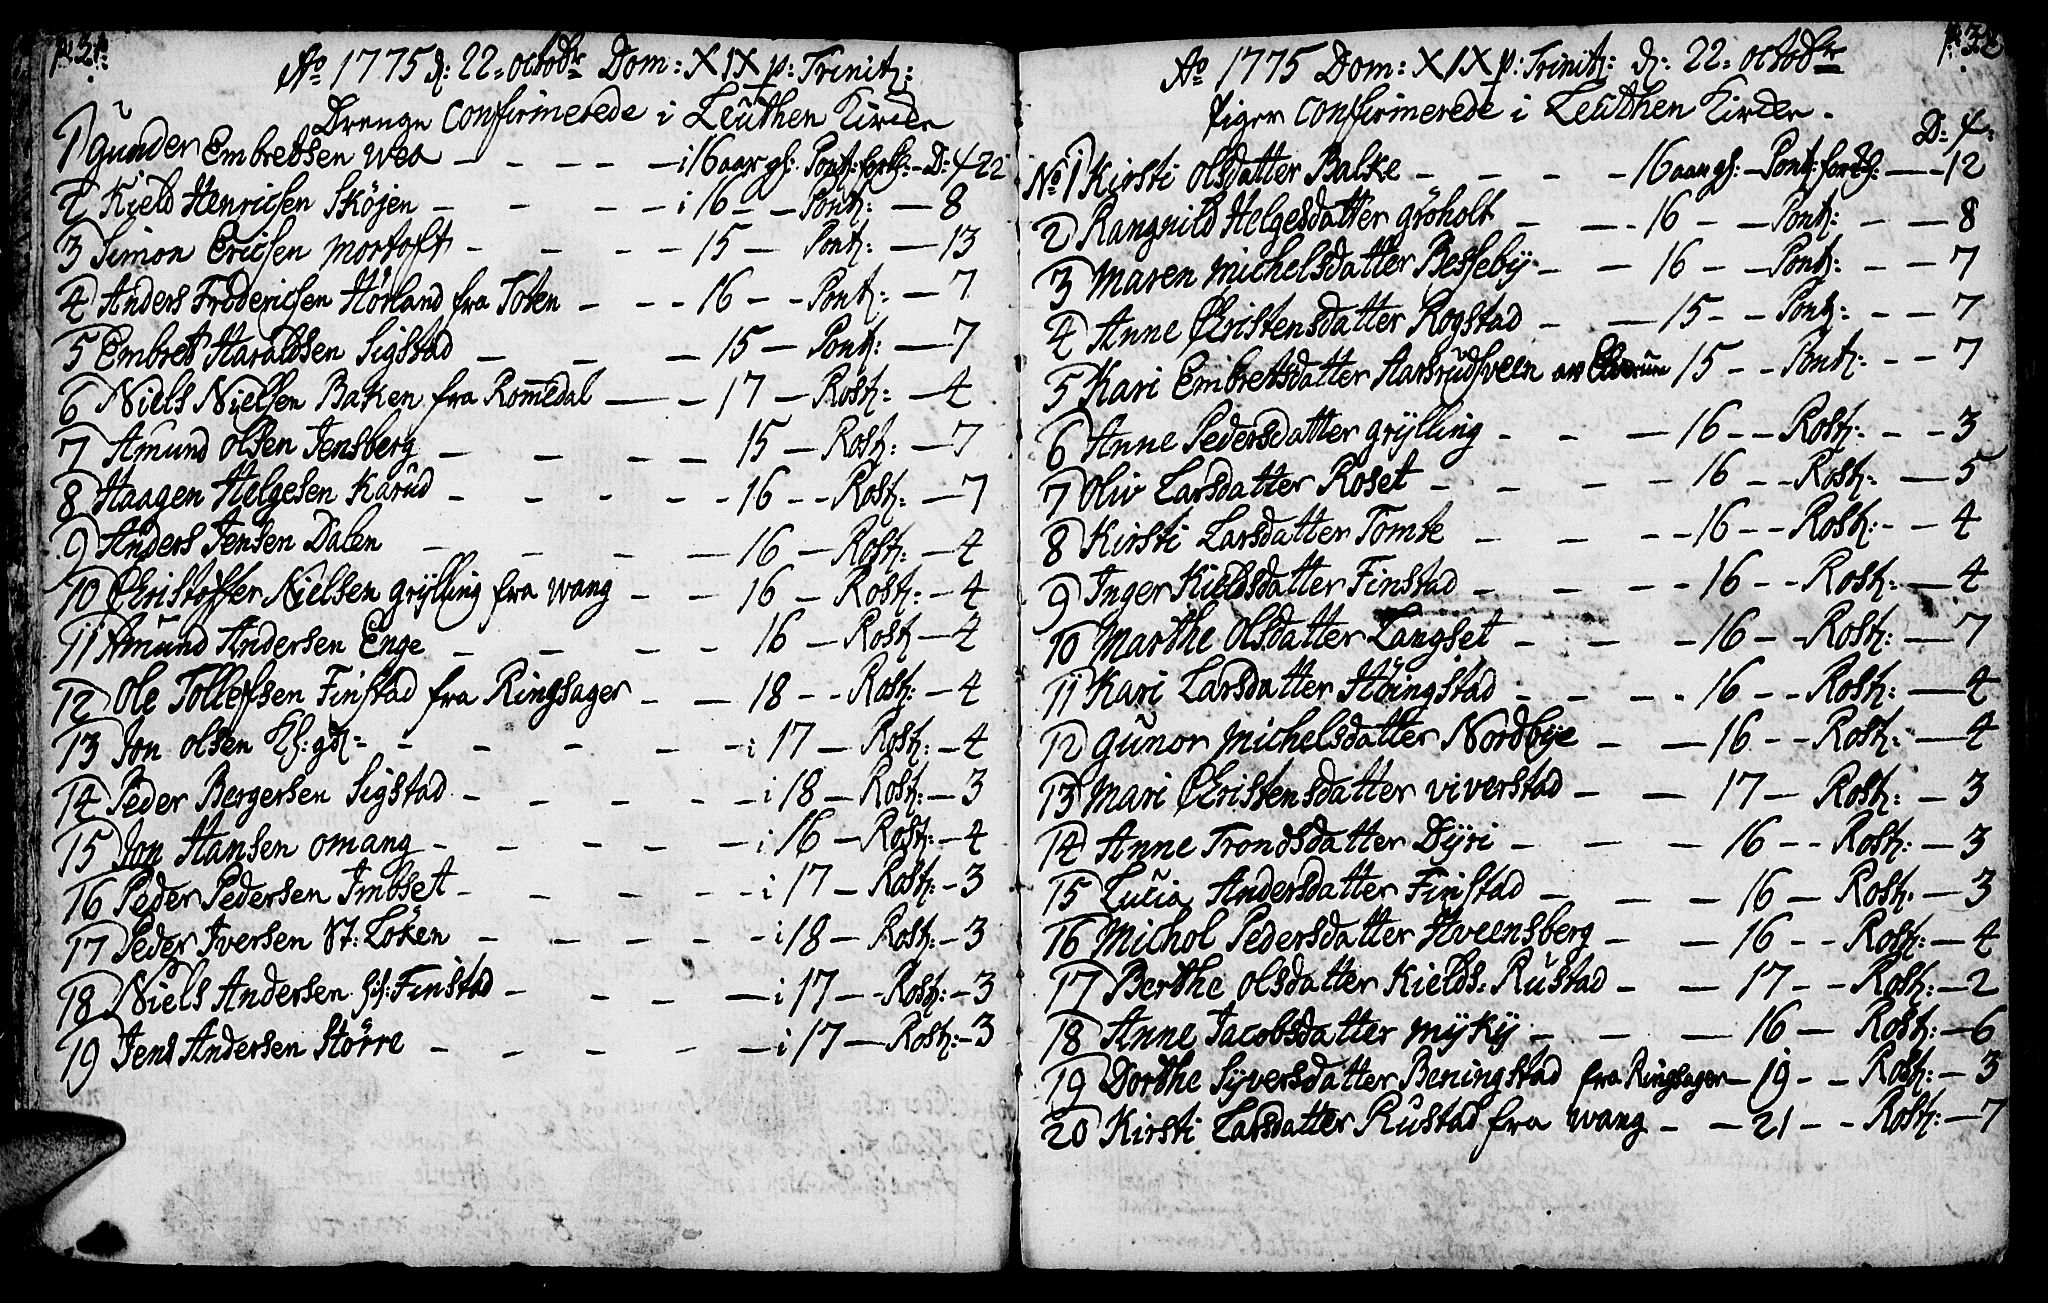 p: 31:
Ao 1775 d: 22 = octobr Dom: XIX p: Trinit:
Drenge confirmerede i Leuthen Kircke
1 Gunder Embretsen Wea - - - - - i 16 aar gl: Pont: - D: 4 22
2 Kield Henricsen Sköjen - - - - i 16 - - Pont: - 8
3 Simon Ericsen Mortoft - - - - 15 - Pont: - 13
4 Anders Fridericsen Hörland fra Toten - - - 16 - - Pont: - 7
5 Embret Haraldsen Sigstad - - - 15 - Pont: - 7
6 Niels Nielsen Baken fra Romedal - - 17 - Rost: - 4
7 Amund olsen Jensberg - - - - 15 - Rost: - 7
8 Haagen Helgesen Karud - - - - - 16 - - Rost: - 7
9 Anders Jensen Dalen - - - - 16 - Rost: - 4
10 Christoffer Nielsen Grÿlling fra Wang - - 16 - Rost: - 4
11 Amund Andersen Enge - - - - 16 - Rost - 4
12 Ole Tollefsen Finstad fra Ringsager - - 18 - - Rost: - 4
13 Jon olsen - - - - - i 17 - Rost: - 4
14 Peder Bergersen Sigstad - - - - - i 18 - Rost: - 3
15 Jon Hansen Omang - - - - - i 16 - Rost: - 4
16 Peder Pedersen Imbset - - - - - i 17 - Rost: - 3
17 Peder Iversen St: Löken - - - - - i 18 - Rost: - 3
18 Niels Andersen Finstad - - - - i 17 - - Rost: - 3
19 Jens Andersen Större - - - - - i 17 - Rost: - 3
p: 32
Ao 1775 Dom: XIX p: Trinit: d: 22 = octobr
Piger confirmerede i Leuthen Kircke -
D: 4:
No 1 Kirsti Olsdatter Balke - - - - 16 aar gl: - Pont: - 12
2 Rangnild Helgesdatter Gröholt - - - 16 - - Pont: - - 8
3 Maren Michelsdatter Besseby - - 16 - - Pont: - - 7
4 Anne Christensdatter Rogstad - - 15 - - Pont: - - 7
5 Kari Embretsdatter Harsrudsveen 15 - - Pont: - - 7
6 Anne Pedersdatter Grÿlling - - - 16 - - Rost: - - 3
7 Oliv Larsdatter Roset - - - - 16 - - Rost: - 5
8 Kirsti Larsdatter Tomte - - - - 16 - - Rost: - - 4
9 Inger Kieldsdatter Finstad - - - - 16 - - Rost: - 4
10 Marthe Olsdatter Langset - - - 16 - - Rost: - 7
11 Kari Larsdatter Höingstad - - - - 16 - - Rost: - 4
12 Gunor Michelsdatter Nordbye - - 16 - - Rost: - 4
13 Mari Christensdatter Viverstad - - 17 - Rost: - 3
14 Anne Trondsdatter Dÿri - - - 16 - - Rost: - 3
15 Lucia Andersdatter Finstad - - - 16 - Rost: - 3
16 Michol Pedersdatter Hveensberg - - 16 - - Rost: - 4
17 Berthe Olsdatter Kields: Rustad - - 17 - - Rost: - 2
18 Anne Jacobsdatter Mÿkÿ - - - 16 - Rost: - 6
19 Dorthe Sÿversdatter Beningstad fra Ringsager - 19 - - Rost: - 3
20 Kirsti Larsdatter Rustad fra Wang - - 21 - - Rost: - 7